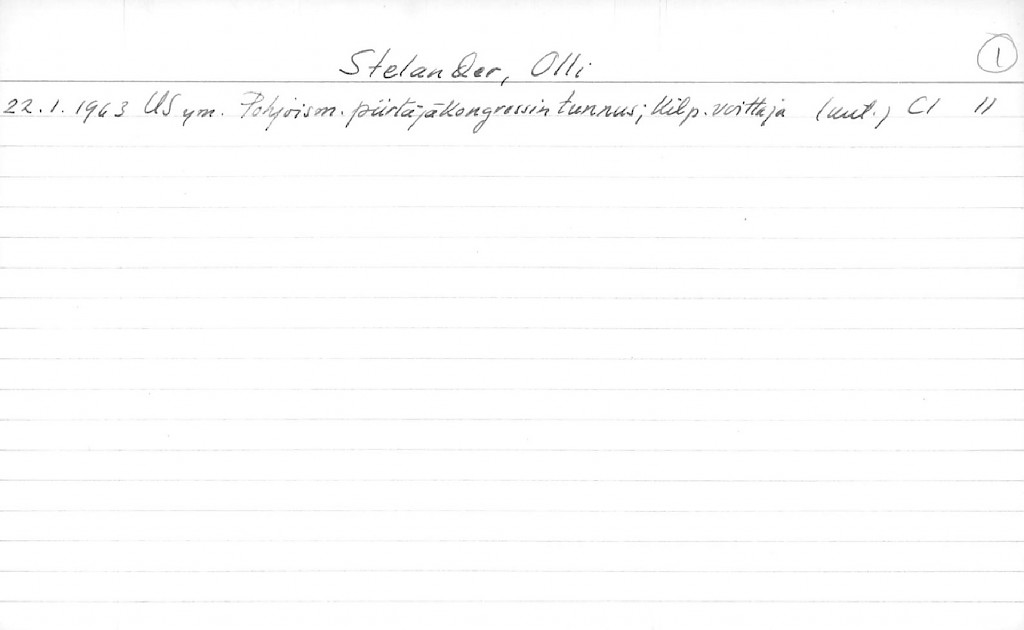 1
Stelander, Olli
22.1.1963 US ym. Pohjoism. piirtäjäkongressin tunnus; kilp. voittaja (uut.) CI 11